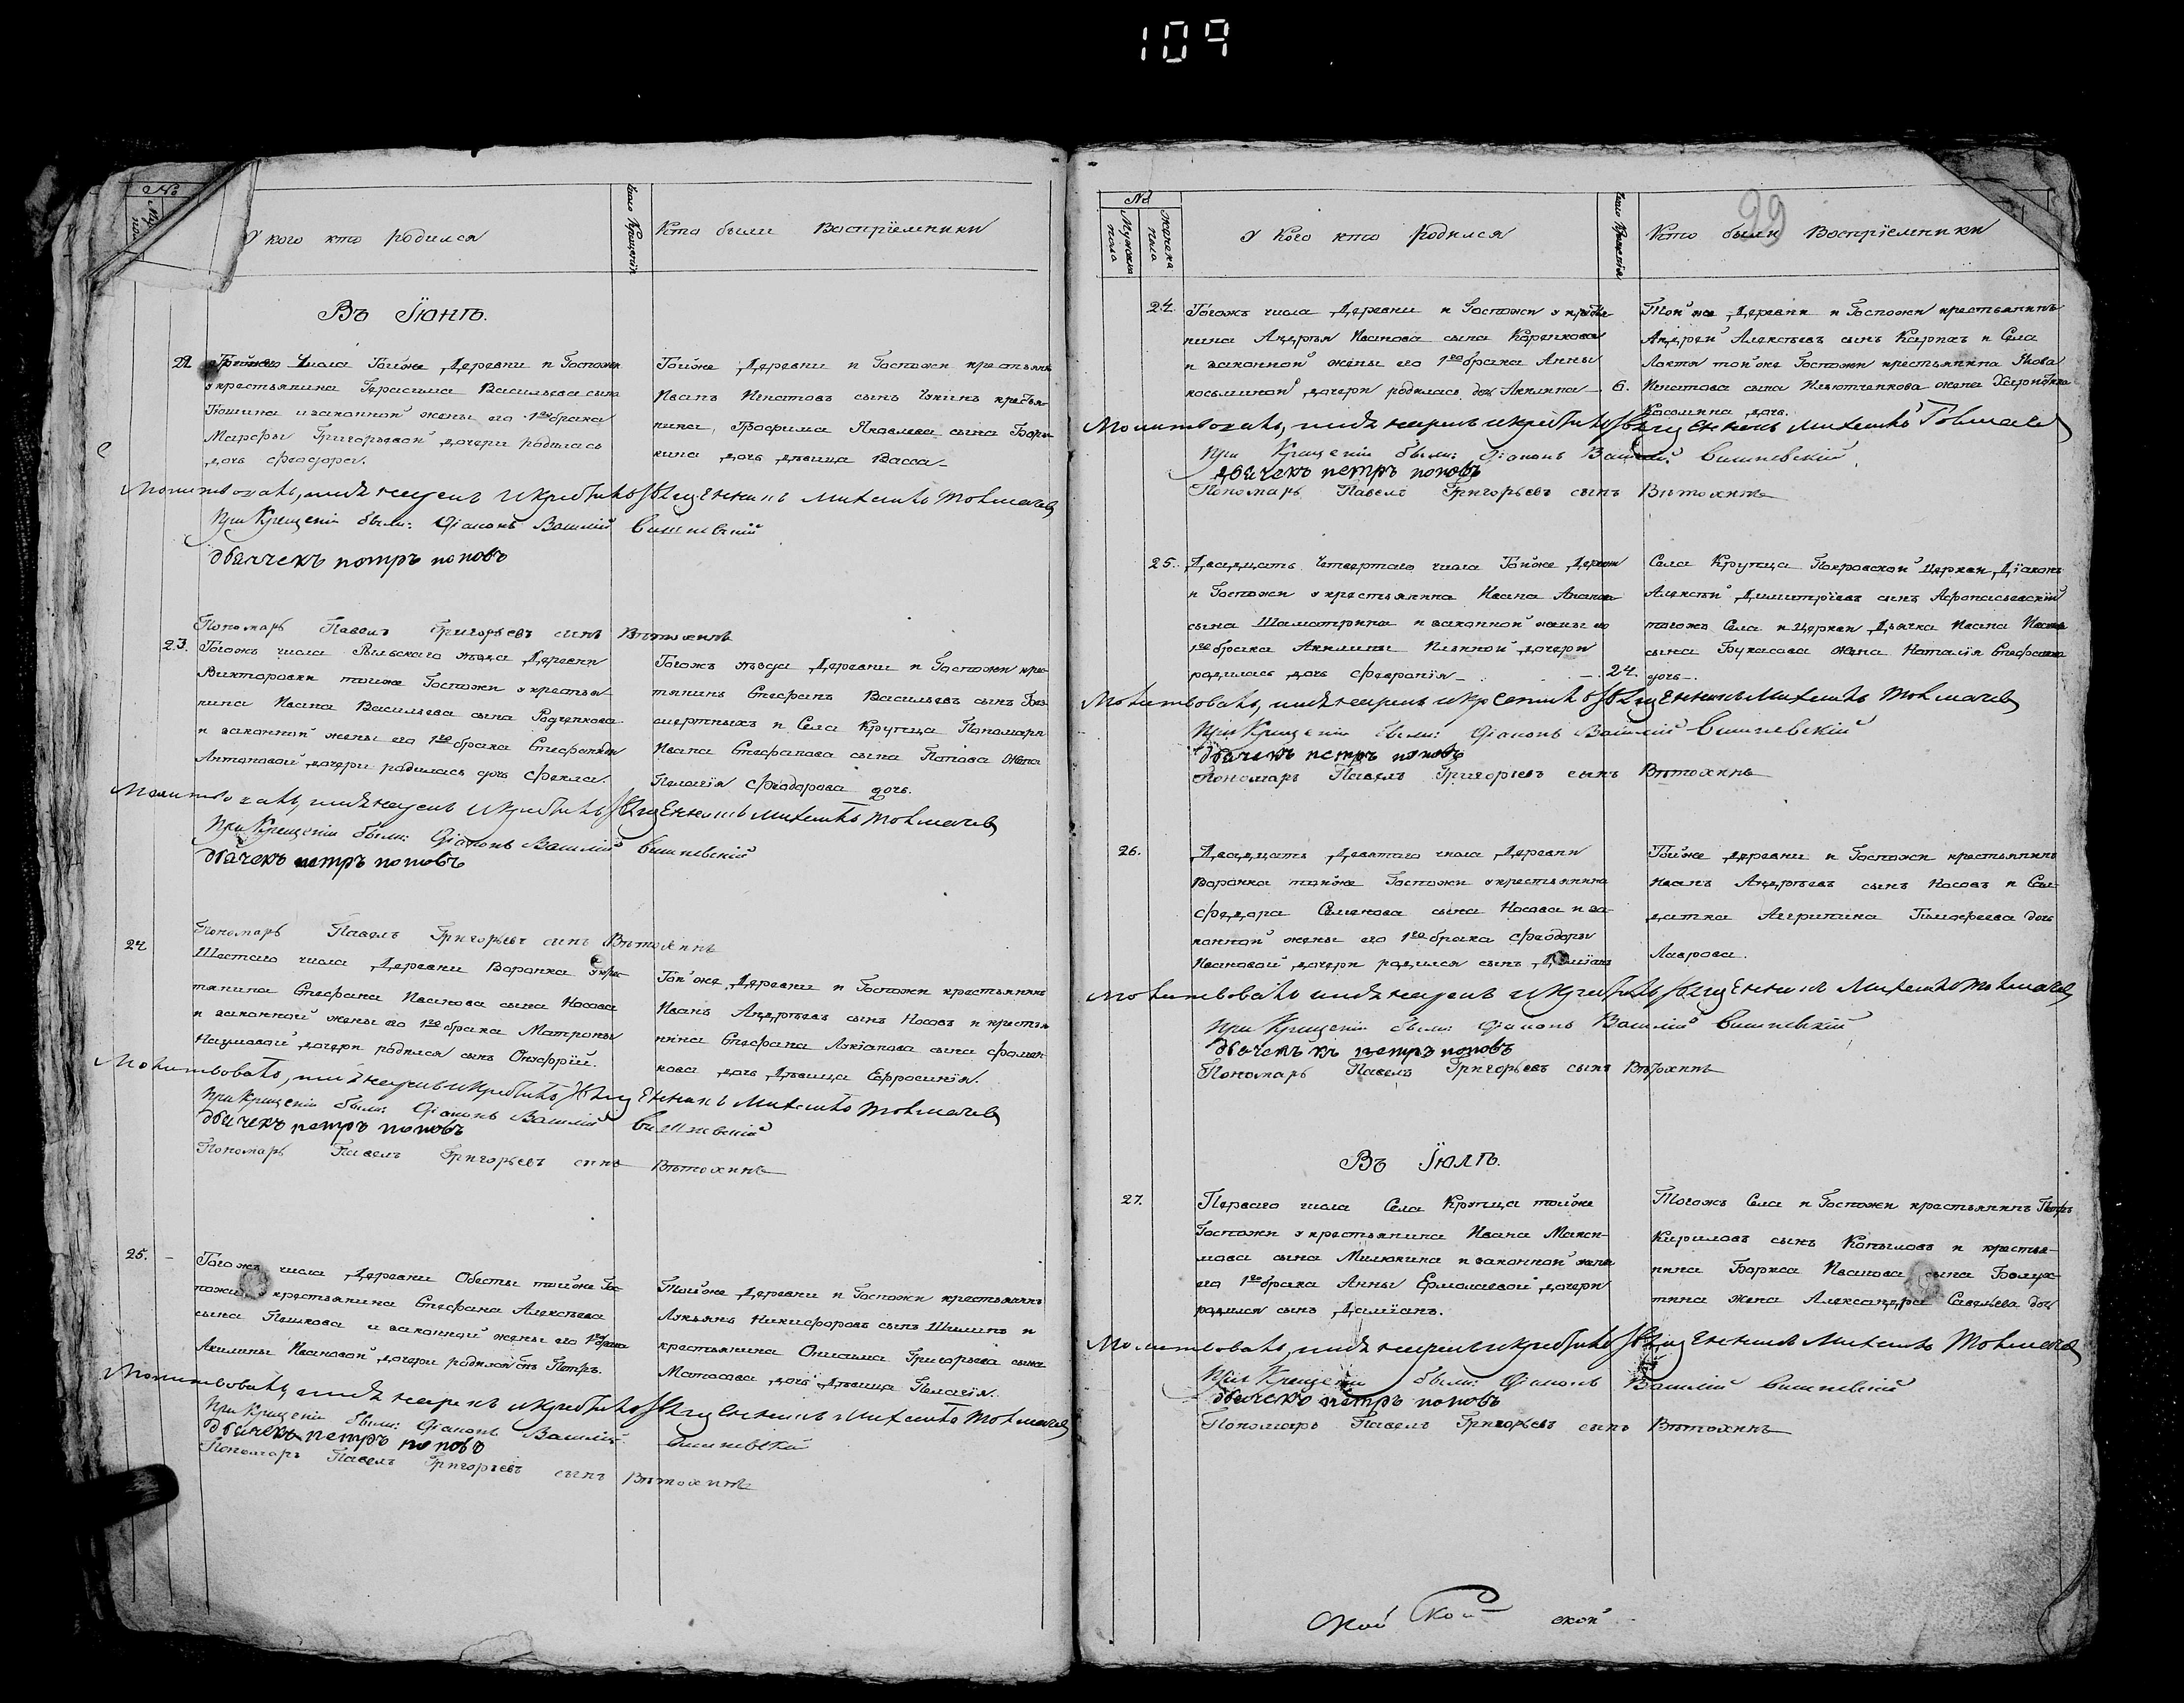 109
№
У кого кто родился
Число Крещенія
Кто были Воспріемники
Въ Іюнѣ.
22.
Третьяго Числа Тойже Деревни и Госпожи
у крестьянина Герасима Васильева сына
и законной жены его 1го брака
Марфы Григорьевой дочери родилась
дочь Феодора.
Тойже Деревни и Госпожи крестьянинъ
Иванъ Игнатовъ сынъ крестья-
нина Трофима Яковлева сына
дочь дѣвица Васса
Молитвовалъ, имя нарекъ и крестилъ Священникъ Михаилъ Толмачевъ
При Крещеніи были: Діаконъ Василій Вишневскій
дьячекъ петръ поповъ
Пономарь Павелъ Григорьевъ сынъ Вѣтохинъ
23.
Тогожъ числа Рыльскаго уѣзда Деревни
Викторовки тойже Госпожи у крестья-
нина Ивана Васильева сына Радченкова
и законной жены его 1го брака Стефаниды
Антоновой дочери родилась дочь Фекла.
Тогожъ уѣзда Деревни и Госпожи кре-
тянинъ Стефанъ Васильевъ сынъ Без-
смертныхъ и Села Крупца Пономаря
Ивана Стефанова сына Попова жена
Пелагія Феодорова дочь.
Молитвовалъ, имя нарекъ и крестилъ Священникъ Михаилъ Толмачевъ
При Крещеніи были: Діаконъ Василій Вишневскій
дьячекъ петръ поповъ
Пономарь Павелъ Григорьевъ сынъ Вѣтохинъ
24
Шестаго числа Деревни Воронка у крес-
тянина Стефана Иванова сына Носова
и законной жены его 1го брака Матроны
Наумовой дочери родился сынъ Онуфрій.
Той же Деревни и Госпожи крестьянинъ
Иванъ Андрѣевъ сынъ Носовъ и крестья
нина Стефана Лукіанова сына Фомен
кова дочь дѣвица Ефросинія.
Молитвовалъ, имя нарекъ и крестилъ Священникъ Михаилъ Толмачевъ
При Крещеніи были: Діаконъ Василій Вишневскій
дьячекъ петръ поповъ
Пономарь Павелъ Григорьевъ сынъ Вѣтохинъ
25.
Тогожъ числа Деревни Обесты тойже Гос-
пожи у крестьянина Стефана Алексѣева
сына Пешкова и законной жены его 1го брака
Акилины Ивановой дочери родился сынъ Петръ.
Тойже Деревни и Госпожи крестьянинъ
Лукьянъ Никифоровъ сынъ Шилинъ и
крестьянина Онисима Григорьева сына
Матосова дочь дѣвица Пелагія.
Молитвовалъ, имя нарекъ и крестилъ Священникъ Михаилъ Толмачевъ
При Крещеніи были: Діаконъ Василій Вишневскій
дьячекъ петръ поповъ
Пономарь Павелъ Григорьевъ сынъ Вѣтохинъ
99
№
Мужеска пола
Женска пола
У кого кто родился
Число Крещенія
Кто были Воспріемники
24.
Тогожъ числа Деревни и Госпожи у крестья
нина Андрея Иванова сына Коренкова
и законной жены его 1го брака Анны
Косьминой дочери родилась дочь Акилина
6.
Той же Деревни и Госпожи крестьянинъ
Андрей Алексѣевъ сынъ Карпаъ и Села
Локтя той же Госпожи крестьянина Якова
Игнатова сына жена
Косьмина дочь.
Молитвовалъ, имя нарекъ и крестилъ Священникъ Михаилъ Толмачевъ
При Крещеніи были: Діаконъ Василій Вишневскій
дьячекъ петръ поповъ
Пономарь Павелъ Григорьевъ сынъ Вѣтохинъ
25.
Двадцать Четвертаго числа Тойже Деревни
и Госпожи у крестьянина Ивана
сына Шаматрина и законной жены его
1го брака Акилины Ильиной дочери
родилась дочь Феѵронія
24.
Села Крупца Покровской Церкви Діаконъ
Алексѣй Димитріевъ сынъ Афанасьевскій
тогожъ Села и Церкви Дьячка Ивана
сына Букасова жена Наталія Стефанова
дочь.
Молитвовалъ, имя нарекъ и крестилъ Священникъ Михаилъ Толмачевъ
При Крещеніи были: Діаконъ Василій Вишневскій
дьячекъ петръ поповъ
Пономарь Павелъ Григорьевъ сынъ Вѣтохинъ
26.
Двадцать Девятаго числа Деревни
Воронка тойже Госпожи у крестьянина
Феодора Семенова сына Носова и за-
конной жены его 1го брака Феодоры
Ивановой дочери родился сынъ Даміанъ
Тойже деревни и Госпожи крестьянинъ
Иванъ Андрѣевъ сынъ Носовъ и Сол-
датка Агрипина Тимофеева дочь
Лаврова.
Молитвовалъ имя нарекъ и крестилъ Священникъ Михаилъ Толмачевъ
При Крещеніи были: Діаконъ Василій Вишневскій
дьячекъ петръ поповъ
Пономарь Павелъ Григорьевъ сынъ Вѣтохинъ
Въ Іюлѣ.
27.
Перваго числа Села Крупца тойже
Госпожи у крестьянина Ивана Макси-
мова сына Милюкина и законной жены
его 1го брака Анны Ермолаевой дочери
родился сынъ Даміанъ.
Тогожъ Села и Госпожи крестьянинъ Петръ
Кириловъ сынъ Копыловъ и крестья-
нина Бориса Иванова сына Болух-
тина жена Александра Савельева дочь
Молитвовалъ, имя нарекъ и крестилъ Священникъ Михаилъ Толмачевъ
При Крещеніи были: Діаконъ Василій Вишневскій
дьячекъ петръ поповъ
Пономарь Павелъ Григорьевъ сынъ Вѣтохинъ
ской